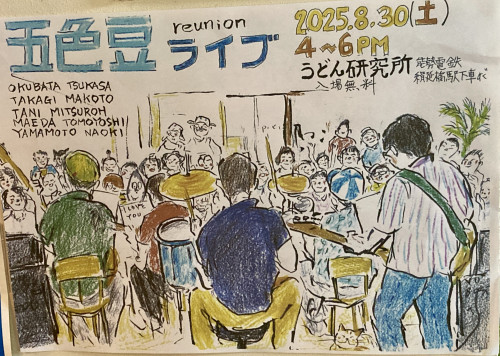 五色豆
reunion
ライブ
OKUBATA TSUKASA
TAKAGI MAKOTO
TANI MITSUROH
MAEDA TOMOYOSHI
YAMAMOTO NAOKI
2025.8.30(土)
4〜6PM
うどん研究所
入場無料
電鉄
駅下車すぐ
YOU